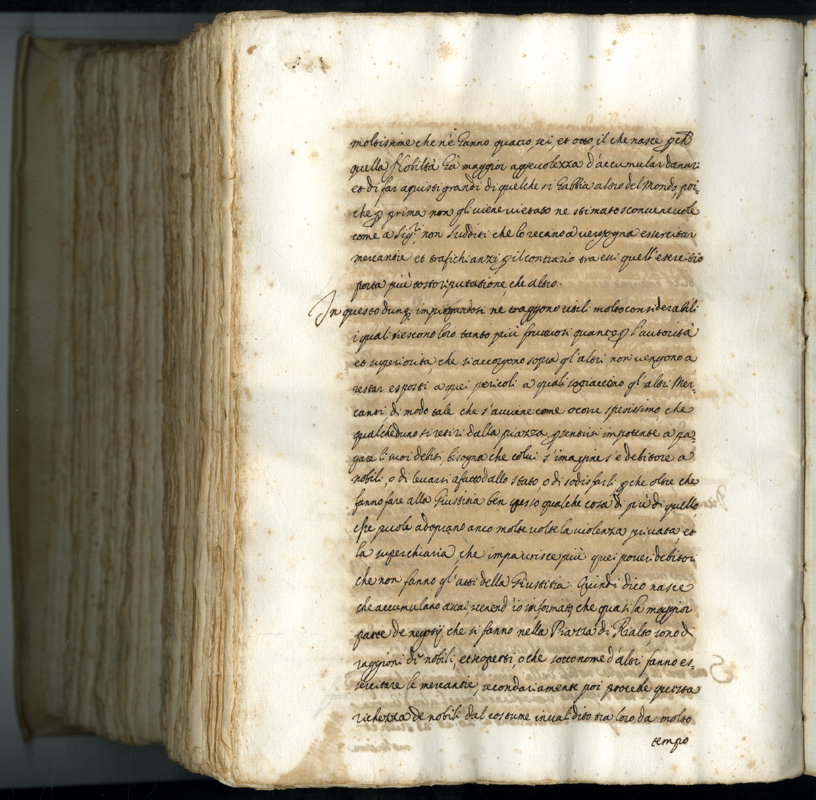 moltissime che n'è hanno quatro, sei et otto il che nasce ꝑch
quella Nobiltà hà maggior aggeuolezza d'accumular danari
et di far aquisti grandi di quelche si habbia altro del Mondo, poi-
che ꝑ prima non gli viene vietato ne stimato sconueneuole
come a Sigri non sudditi che lo recano à vergogna essercitar
mercantie et trafichi anzi ꝑ il contrario tra essi quell'essercitio
porta più tosto riputatione, che altro.
In questo dunq; impiegandosi ne traggono utili molto considerabili
i quali riescono loro tanto più fruttuosi quanto ꝑ l'autorità
et superiorità, che s'accorgono sopra gl'altri non vengono a
restar esposti a quei pericoli a quali sogiacciono gl'altri Mer-
canti di modo tale che s'auuiene come ocorre spesissimo che
qualcheduno si retiri dalla piazza ꝑ sentirsi impotente a pa-
gare li suoi debiti, bisogna che colui s'imagine s'è debitore a
nobili, o di leuarsi afatto dallo stato o di sodisfarli ꝑche oltre che
fanno fare alla Giustitia ben spesso qualche cosa di più di quello
che puole adoprano anco molte volte la violenza priuata, et
la superchiaria, che impaurisce più quei poueri debitori
che non fanno gl'atti della Giustitia. Quindi dico nasce
che accumulano assai essend'io informato, che quasi la maggior
parte de negotij, che si fanno nella Piazza di Rialto sono di
raggioni di nobili, et scoperti, o che sotto nome d'altri fanno es-
sercitare le mercantie, secondariamente poi procede questa
richezza de nobili dal costume inualidito tra loro da molto
tempo